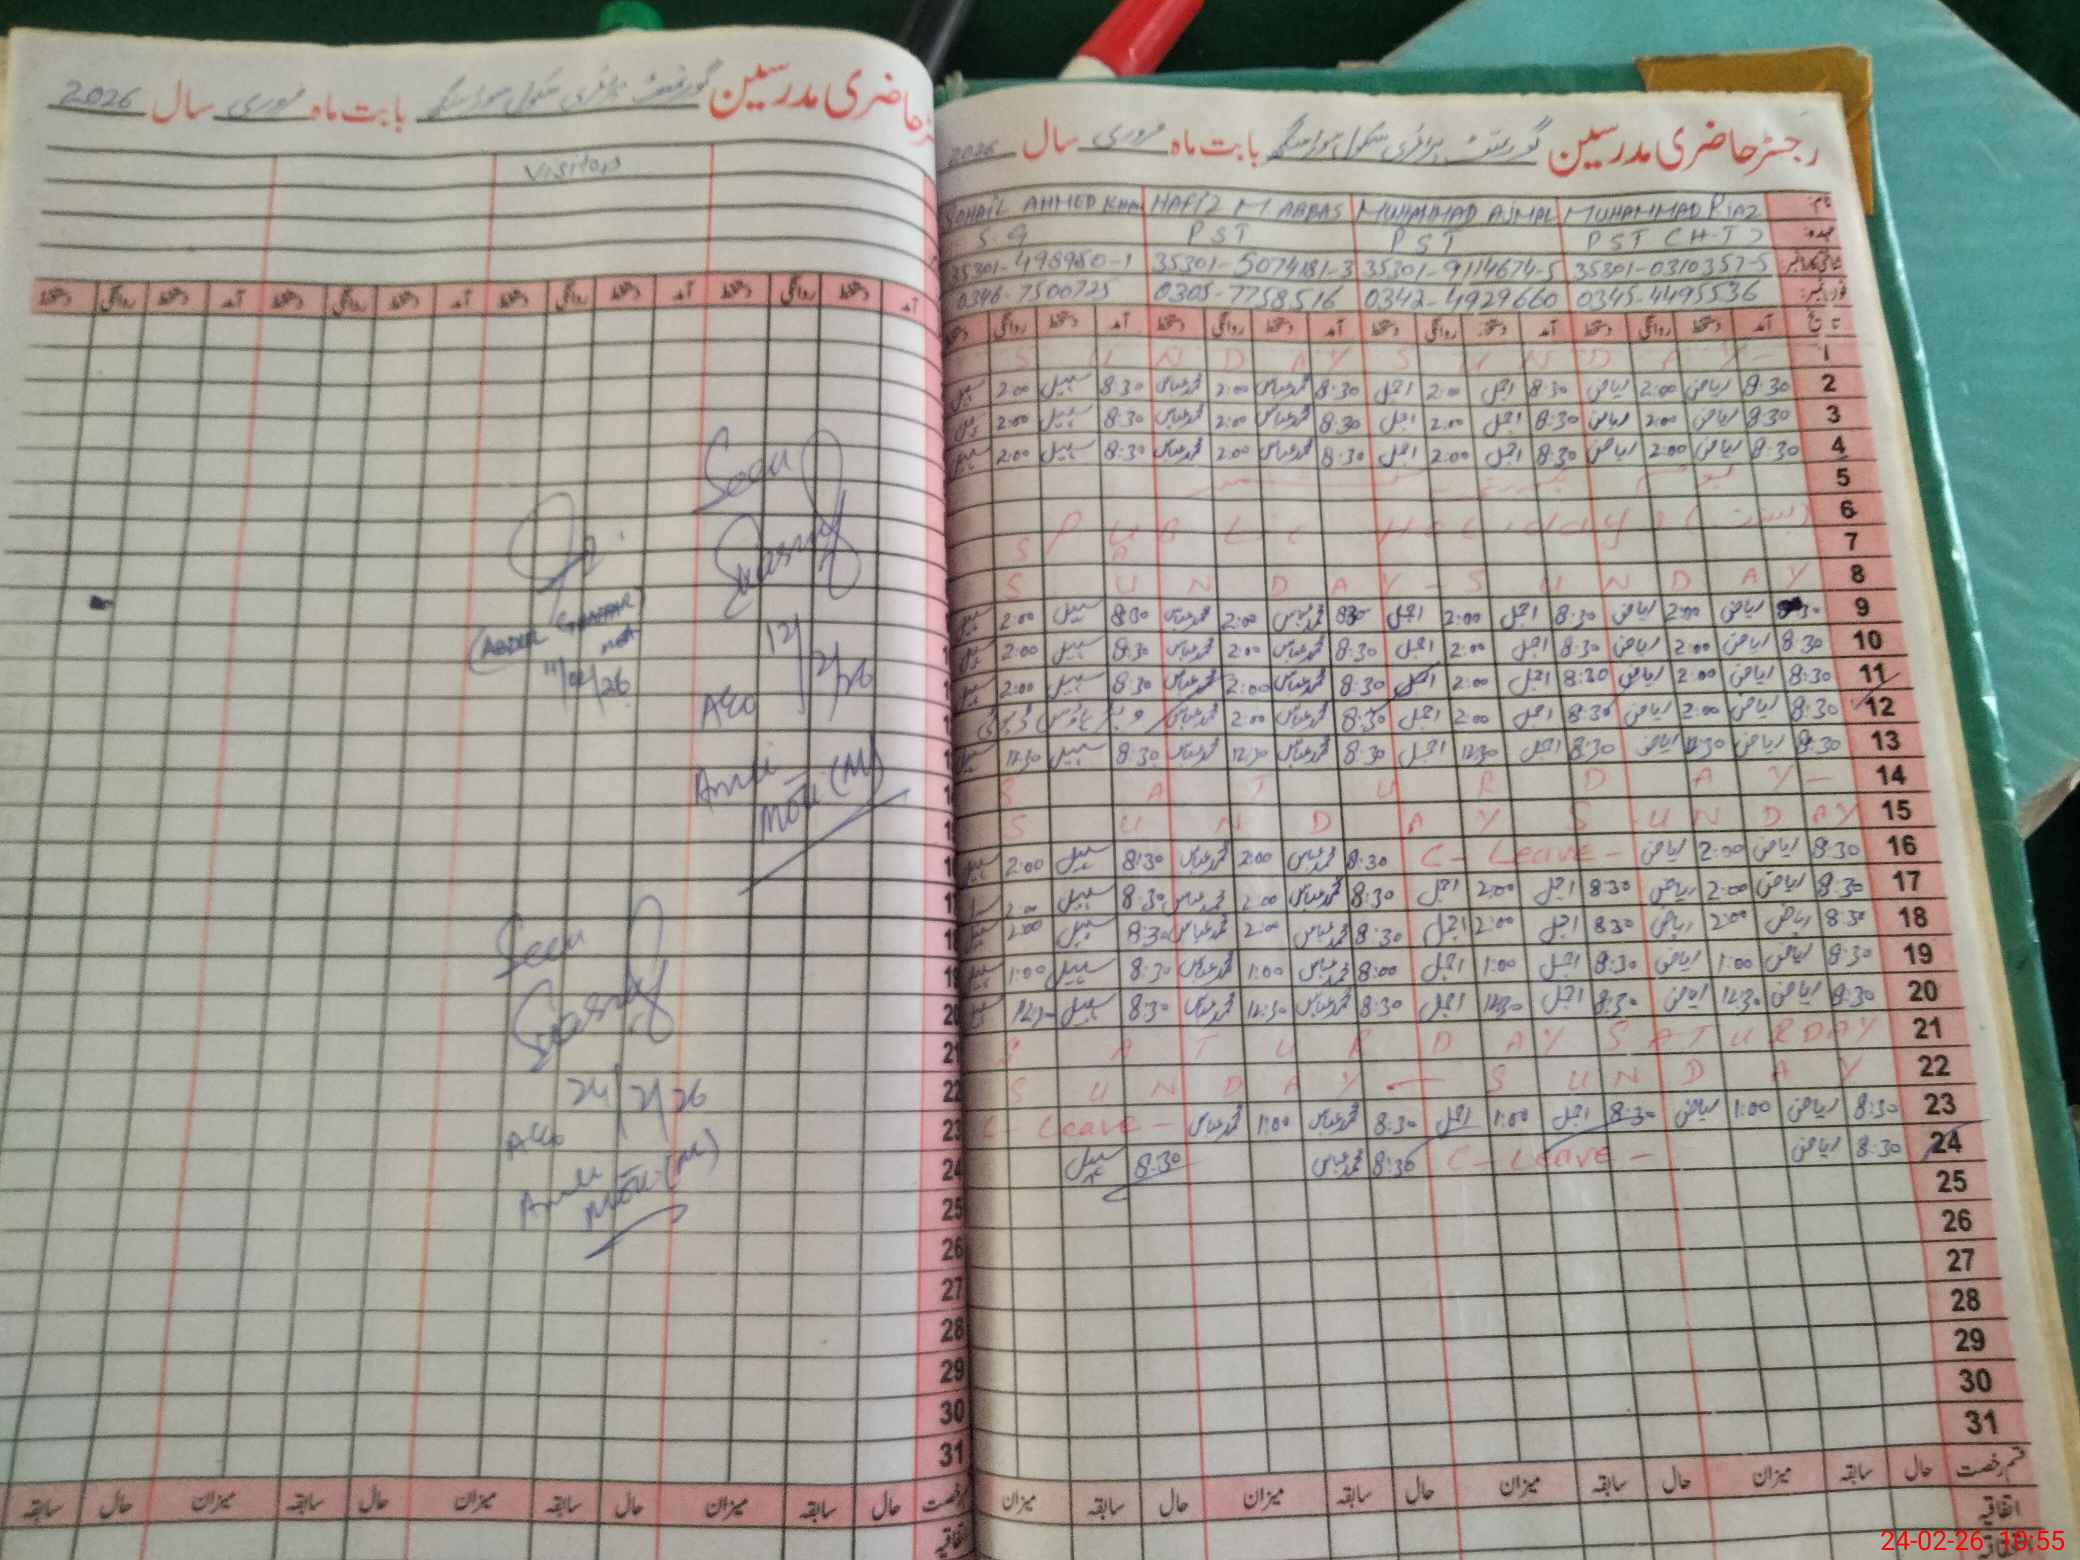 رجسٹر حاضری مدرسین گورنمنٹ پرائمری سکول بابت ماہ فروری سال 2026
نام: MUHAMMAD RIAZ MUHAMMAD AJMAL HAFIZ M ABBAS SOHAIL AHMED KHAN
عہدہ: PST (H-T) PST PST
35301-0310357-5 35301-9114674-5 35301-5074181-3 35301-498980-1
فون نمبر: 0345-4495536 0342-4929660 0305-7758516 0346-7500725
تاریخ آمد دستخط روانگی دستخط آمد دستخط روانگی دستخط آمد دستخط روانگی دستخط آمد دستخط روانگی دستخط
1 SUNDAY SUNDAY
2 8:30 ریاض 2:00 ریاض 8:30 اجمل 2:00 اجمل 8:30 محمد عباس 2:00 محمد عباس 8:30 سہیل 2:00 سہیل
3 8:30 ریاض 2:00 ریاض 8:30 اجمل 2:00 اجمل 8:30 محمد عباس 2:00 محمد عباس 8:30 سہیل 2:00 سہیل
4 8:30 ریاض 2:00 ریاض 8:30 اجمل 2:00 اجمل 8:30 محمد عباس 2:00 محمد عباس 8:30 سہیل 2:00 سہیل
5
6 Public Holiday (بسنت)
7
8 SUNDAY - SUNDAY
9 8:30 ریاض 2:00 ریاض 8:30 اجمل 2:00 اجمل 8:30 محمد عباس 2:00 محمد عباس 8:30 سہیل 2:00 سہیل
10 8:30 ریاض 2:00 ریاض 8:30 اجمل 2:00 اجمل 8:30 محمد عباس 2:00 محمد عباس 8:30 سہیل 2:00 سہیل
11 8:30 ریاض 2:00 ریاض 8:30 اجمل 2:00 اجمل 8:30 محمد عباس 2:00 محمد عباس 8:30 سہیل 2:00 سہیل
12 8:30 ریاض 2:00 ریاض 8:30 اجمل 2:00 اجمل 8:30 محمد عباس 2:00 محمد عباس
13 8:30 ریاض 12:30 ریاض 8:30 اجمل 12:30 اجمل 8:30 محمد عباس 12:30 محمد عباس 8:30 سہیل 12:30 سہیل
14 SATURDAY -
15 SUNDAY SUNDAY
16 8:30 ریاض 2:00 ریاض C-Leave- 8:30 محمد عباس 2:00 محمد عباس 8:30 سہیل 2:00 سہیل
17 8:30 ریاض 2:00 ریاض 8:30 اجمل 2:00 اجمل 8:30 محمد عباس 2:00 محمد عباس 8:30 سہیل 2:00 سہیل
18 8:30 ریاض 2:00 ریاض 8:30 اجمل 2:00 اجمل 8:30 محمد عباس 2:00 محمد عباس 8:30 سہیل 2:00 سہیل
19 8:30 ریاض 1:00 ریاض 8:30 اجمل 1:00 اجمل 8:00 محمد عباس 1:00 محمد عباس 8:30 سہیل 1:00 سہیل
20 8:30 ریاض 12:30 ریاض 8:30 اجمل 12:30 اجمل 8:30 محمد عباس 12:30 محمد عباس 8:30 سہیل 12:30 سہیل
21 SATURDAY SATURDAY
22 SUNDAY - SUNDAY
23 8:30 ریاض 1:00 ریاض 8:30 اجمل 1:00 اجمل 8:30 محمد عباس 1:00 محمد عباس C-Leave-
24 8:30 ریاض C-Leave- 8:30 محمد عباس 8:30 سہیل
25
26
27
28
29
30
31
قسم رخصت حال سابقہ میزان حال سابقہ میزان حال سابقہ میزان حال سابقہ میزان
اتفاقیہ
رجسٹر حاضری مدرسین گورنمنٹ پرائمری سکول بابت ماہ فروری سال 2026
Visitors
آمد دستخط روانگی دستخط آمد دستخط روانگی دستخط آمد دستخط روانگی دستخط آمد دستخط روانگی دستخط
Seen
12/2/26
AEO
(ABDUL GHAFFAR)
11/02/26
Seen
24/2/26
AEO
20
21
22
23
24
25
26
27
28
29
30
31
رخصت حال سابقہ میزان حال سابقہ میزان حال سابقہ میزان حال سابقہ
اتفاقیہ
24-02-26 10:55